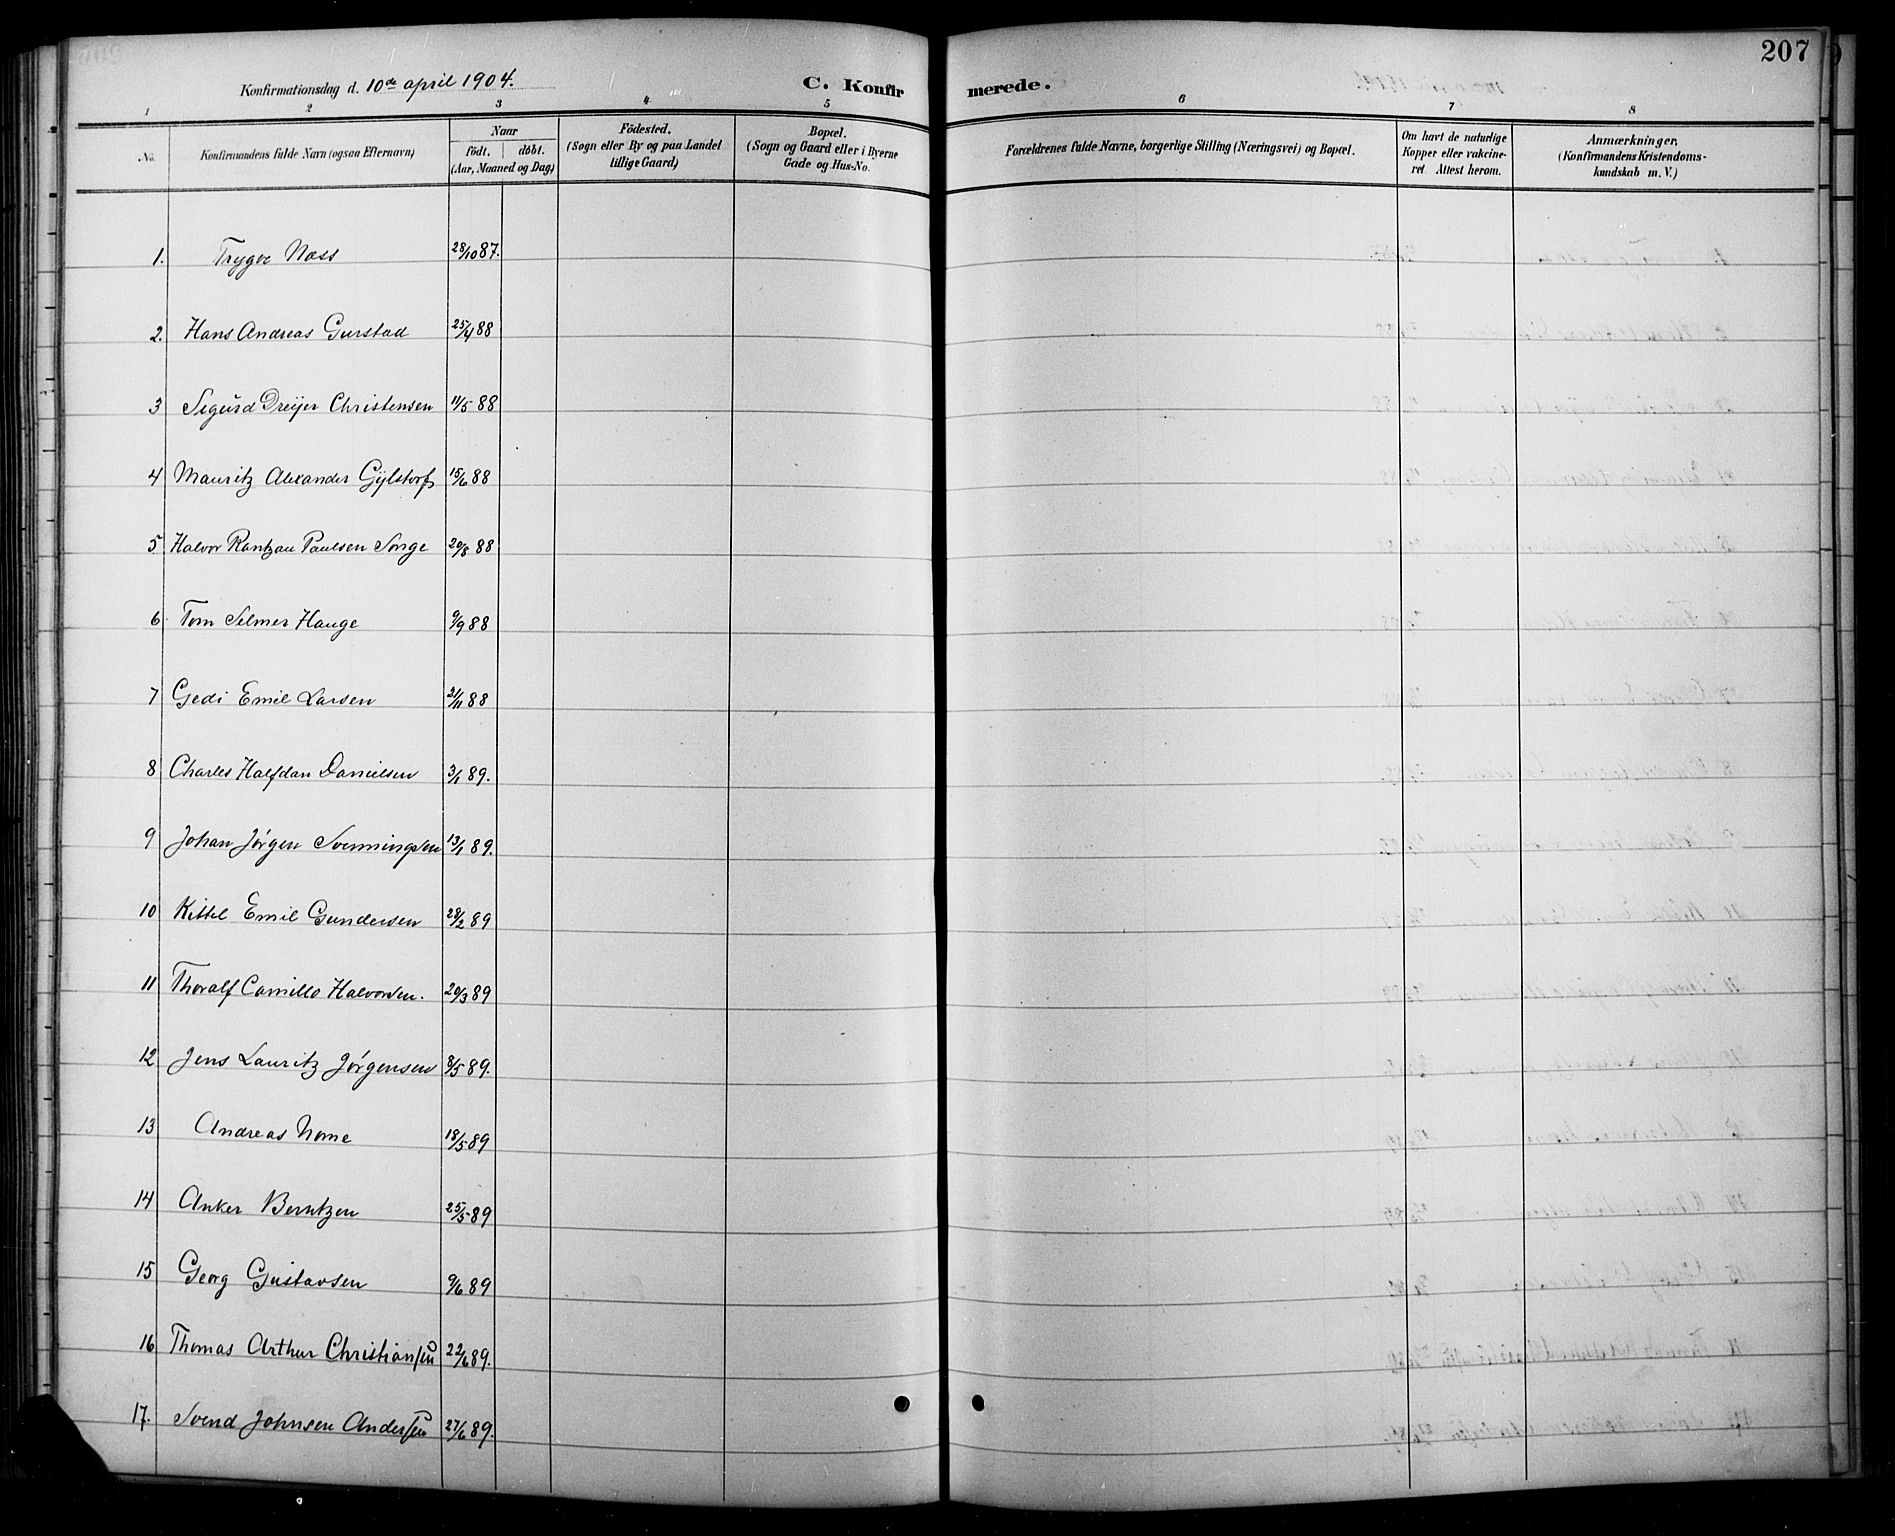 207
Konfirmationsdag d. 10de april 1904.
C. Konfirmerede.
1 2 3 4 5 6 7 8
No. Konfirmandens fulde Navn (ogsaa Efternavn) Naar födt. döbt. (Aar, Maaned og Dag) Födested. (Sogn eller By og paa Landet tillige Gaard) Bopæl. (Sogn og Gaard eller i Byerne Gade og Hus-No. Forældrenes fulde Navne, borgerlige Stilling (Næringsvei) og Bopæl. Om havt de naturlige Kopper eller vakcineret. Attest herom. Anmærkninger. (Konfirmandens Kristendomskundskab m. V.)
1. Trygve Næss 28/10 87.
2. Hans Andreas Gurstad 25/4 88
3 Sigurd Dreijer Christensen 11/5 88
4 Mauritz Alexander Gylstorf 15/6 88
5 Halvor Rantzau Paulsen Songe 20/8 88
6. Tom Selmer Hauge 9/9 88
7 Gedi Emil Larsen 21/11 88
8 Charles Halfdan Danielsen 3/1 89.
9 Johan Jörgen Svenningsen 13/1 89.
10 Kittel Emil Gundersen 28/2 89
11 Thoralf Camillo Halvorsen. 20/3 89
12 Jens Lauritz Jörgensen 8/5 89.
13 Andreas Nome 18/5 89
14 Anker Berntzen 25/5 89
15 Georg Gustavsen 9/6 89
16 Thomas Arthur Christiansen 22/6 89.
17. Svend Johnsen Andersen 27/6 89.